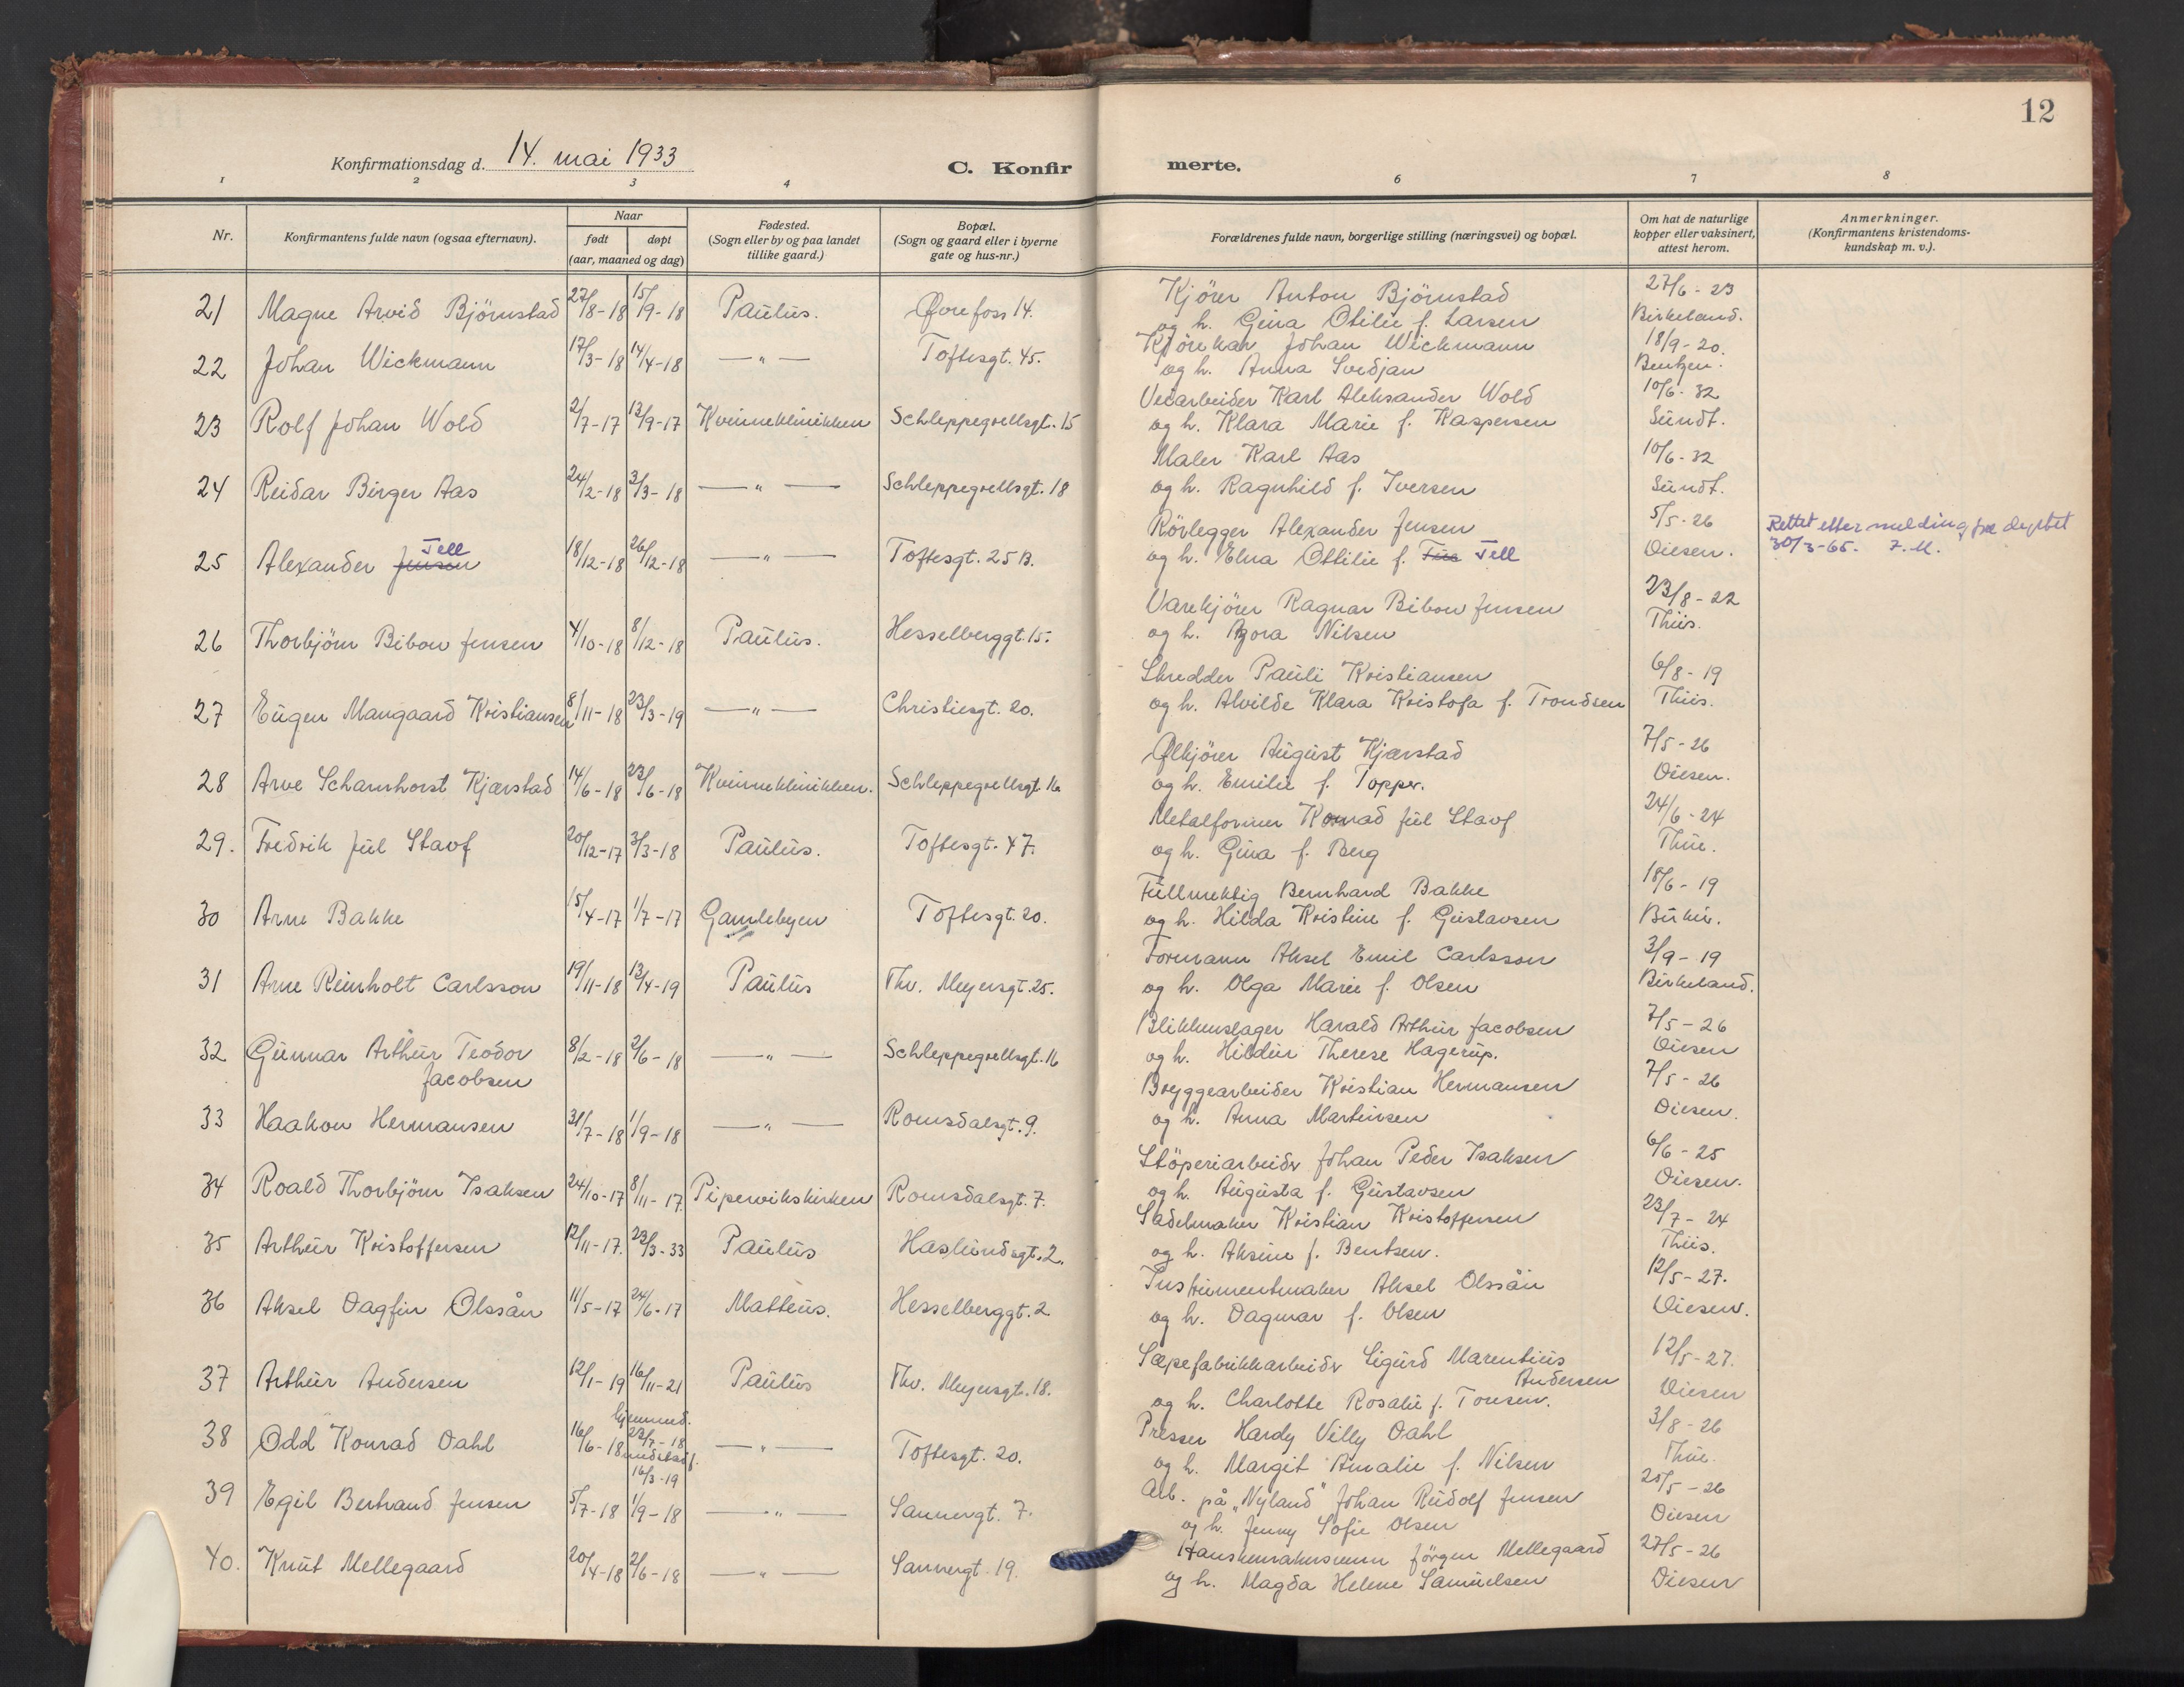 12
Konfirmationsdag d. 14. mai 1933
C. Konfirmerte.
1 2 3 4 6 7 8
Nr.
Konfirmantens fulde navn (ogsaa efternavn).
Naar
født døpt
(aar, maaned og dag)
Fødested.
(Sogn eller by og paa landet
tillike gaard.)
Bopæl.
(Sogn og gaard eller i byerne
gate og hus-nr.)
Forældrenes fulde navn, borgerlige stilling (næringsvei) og bopæl.
Om hat de naturlige
kopper eller vaksinert,
attest herom.
Anmerkninger.
(Konfirmantens kristendoms-
kundskap m. v.).
21 Magne Arvid Björnstad 27/8-18 15/9-18 Paulus. Øvrefoss 14.
Kjörer Anton Björnstad 27/6-23
og h. Gina Otilie f. Larsen Birkeland.
22 Johan Wickmann 17/3-18 14/4-18 —"— Toftesgt. 45.
Kjörekar Johan Wickmann 18/9-20.
og h. Anna Svedjan Bentzen.
23 Rolf Johan Wold 2/7-17 13/9-17 Kvinneklinikken Schleppegrellsgt. 15
Veiarbeider Karl Aleksander Wold 10/6-32
og h. Klara Marie f. Kaspersen Sundt.
24 Reidar Birger Aas 24/2-18 3/3-18 —"— Schleppegrellsgt. 18
Maler Karl Aas 10/6-32
og h. Ragnhild f. Iversen Sundt.
25 Alexander Jensen Tell 18/12-18 26/12-18 —"— Toftesgt. 25 B.
Rörlegger Alexander Jensen 5/5-26
og h. Elna Ottilie f. Tell Diesen.
Rettet etter melding fra dep'tet
30/3-65. F.M.
26 Thorbjörn Bibow Jensen 4/10-18 8/12-18 Paulus. Hesselberggt. 15.
Varekjörer Ragnar Bibow Jensen 23/8-22
og h. Agora Nilsen Thiis.
27 Eugen Mangaard Kristiansen 8/11-18 23/3-19 —"— Christiesgt. 20.
Skredder Pauli Kristiansen 6/8-19
og h. Alvilde Klara Kristofa f. Trondsen Thiis.
28 Arve Scharnhorst Kjærstad 14/6-18 23/6-18 Kvinneklinikken. Schleppegrellsgt. 16
Ølkjörer August Kjærstad 7/5-26
og h. Emilie f. Topper. Diesen.
29. Fredrik Juul Stavf 20/12-17 3/3-18 Paulus. Toftesgt. 47.
Metalformer Konrad Juul Stavf 24/6-24
og h. Gina f. Berg Thue.
30 Arne Bakke 15/4-17 1/7-17 Gamlebyen Toftesgt. 20.
Fullmektig Bernhard Bakke 18/6-19
og h. Hilda Kristine f. Gustavsen
31 Arne Reinholt Carlsson 19/11-18 13/4-19 Paulus Thv. Meyersgt. 25.
Formann Aksel Emil Carlsson 3/9-19
og h. Olga Marie f. Olsen Birkeland.
32 Gunnar Arthur Teodor 8/2-18 2/6-18 —"— Schleppegrellsgt. 16
Jacobsen
Blikkenslager Harald Arthur Jacobsen 7/5-26
og h. Hildur Therese Hagerup. Diesen
33 Haakon Hermansen 31/7-18 1/9-18 —"— Romsdalsgt. 9.
Bryggearbeider Kristian Hermansen 7/5-26
og h. Anna Martinsen Diesen.
34 Roald Thorbjörn Isaksen 24/10-17 8/11-17 Pipervikskirken Romsdalsgt. 7.
Stöperiarbeider Johan Peder Isaksen 6/6-25
og h. Augusta f. Gustavsen Diesen.
35 Arthur Kristoffersen 12/11-17. 23/3-33 Paulus Haslundsgt. 2.
Sadelmaker Kristian Kristoffersen 23/7-24
og h. Aksine f. Bentsen. Thiis.
36 Aksel Dagfin Olssån 11/5-17 24/6-17 Matteus. Hesselberggt. 2
Instrumentmaker Aksel Olssån 12/5-27.
og h. Dagmar f. Olsen Diesen.
37 Arthur Andersen 12/1-19 16/11-21 Paulus Thv. Meyersgt. 18.
Sæpefabrikkarbeider Sigurd Marentius 12/5-27.
Andersen
og h. Charlotte Rosalie f. Tonsen. Diesen
38 Odd Konrad Dahl 16/6-18 hjemmed. 23/7-18 stadf. 16/3-19 —"— Toftesgt. 20.
Presser Hardy Villy Dahl 3/8-26
og h. Margit Amalie f. Nilsen Thue.
39 Egil Bertrand Jensen 5/7-18 1/9-18 —"— Sannergt. 7.
Arb. på "Nyland" Johan Rudolf Jensen 25/5-26
og h. Jenny Sofie Olsen Diesen
40. Knut Mellegaard 20/4-18 2/6-18 —"— Sannergt. 19.
Hanskemakersvenn Jörgen Mellegaard 27/5-26
og h. Magda Helene Samuelsen Diesen